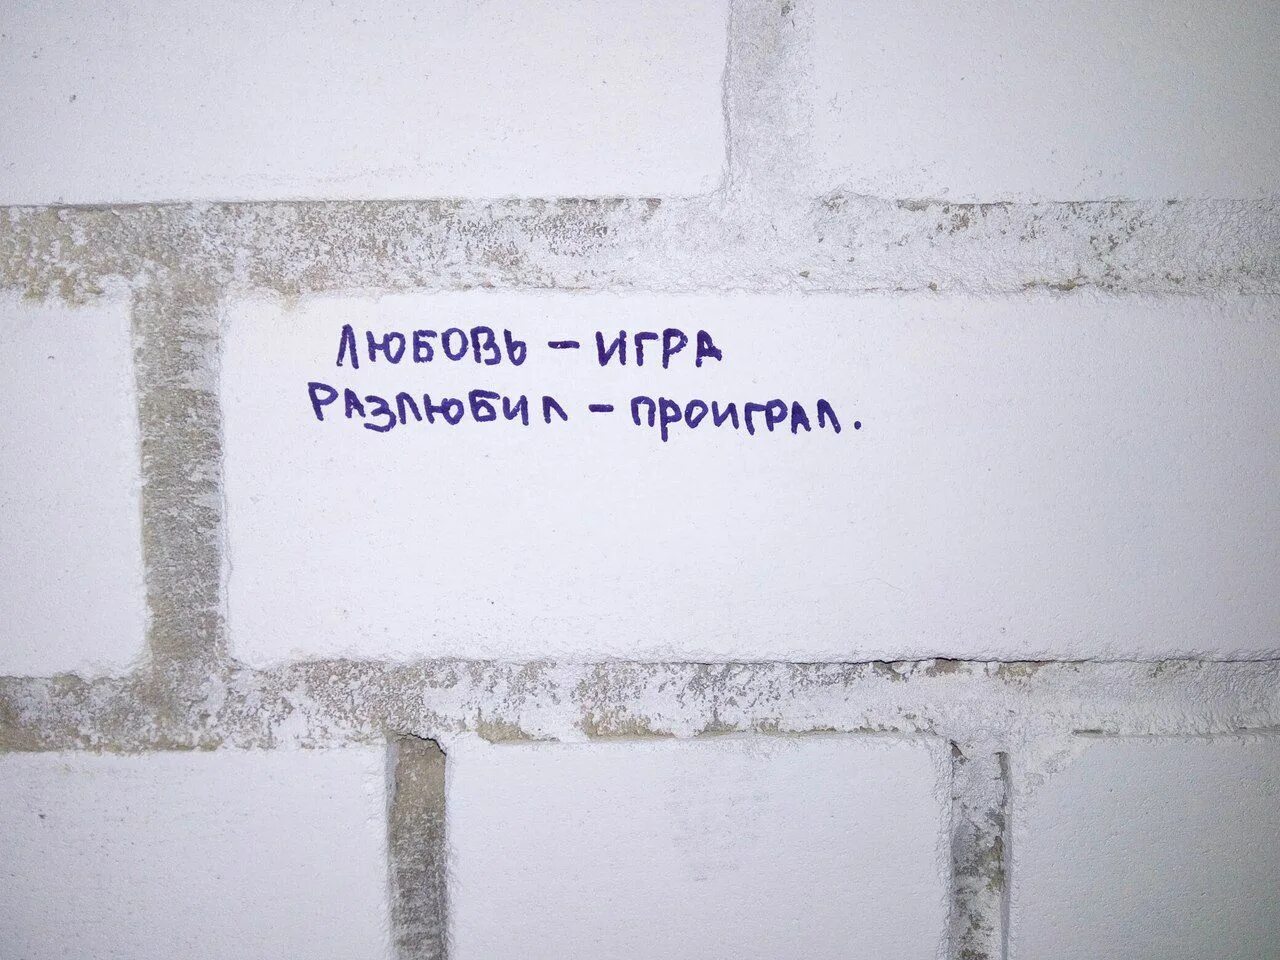 ЛЮБОВЬ – ИГРА
РАЗЛЮБИЛ – ПРОИГРАЛ.